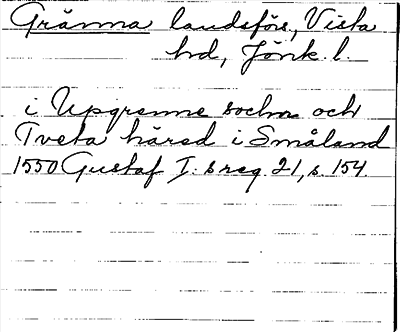 Gränna landsförs, Vista
hd, Jönk. l.
i Upgrenne sochn och
Tveta härad i Småland
1550 Gustaf I:s reg. 21, s. 154.